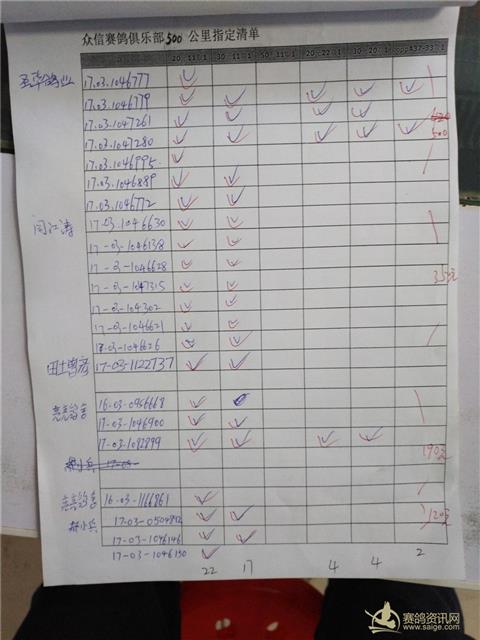 众信赛鸽俱乐部 500 公里指定清单
20-11
30-11
50-11
20-22
30-20
17.03.1046777
17.03.1046779
17.03.1047261
17.03.1047280
500
17.03.1046995
17.03.1046889
17.03.1046772
闫江涛
17-03.1046630
17-03-1046138
17-03-1046628
17-03-1047315
17-03-104302
17-03-1046621
17-03-1046626
17-03-1122737
16-03-0956668
17-03-1046900
17-03-1082899
190元
郝小兵
16-03-1166861
郝小兵 17-03-0504892
120元
17-03-1046146
17-03-1046150
22 17 4 4 2
赛鸽资讯网
www.saige.com